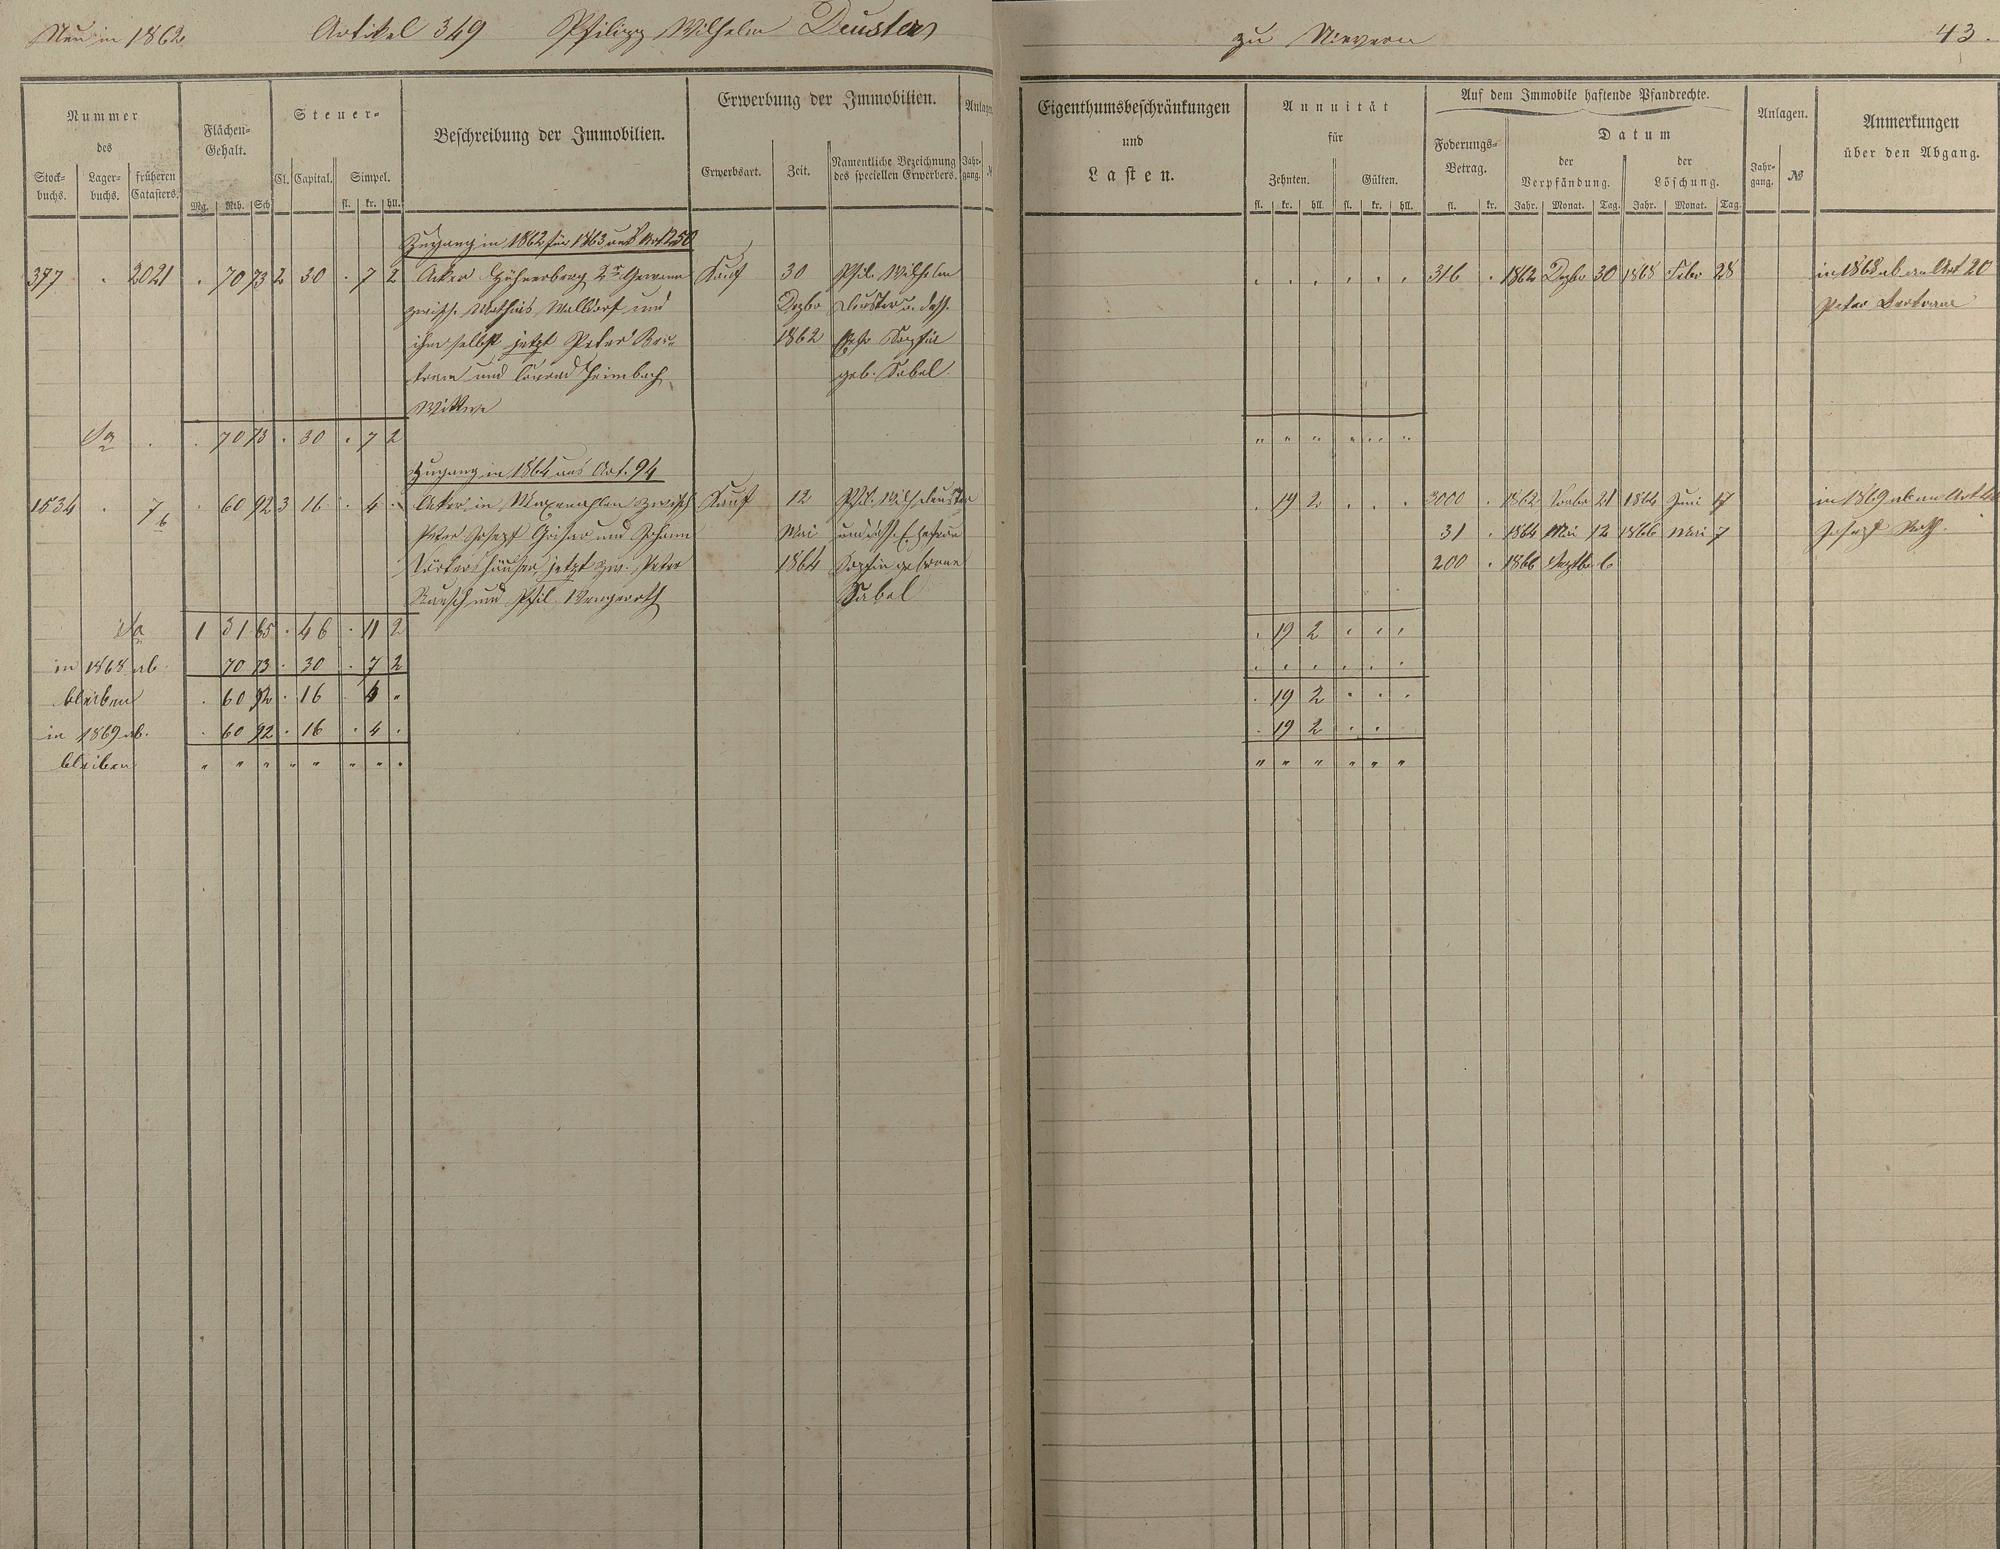 Neu in 1862 Artikel 349 Philipp Wilhelm Deuster zu Nievern 43.
Nummer des
Stock-buchs. Lager-buchs. früheren Catasters.
Flächen-Gehalt.
Mg. Rth. Sch.
Steuer-
Cl. Capital. Simpel.
fl. kr. hll.
Beschreibung der Immobilien.
Erwerbung der Immobilien.
Erwerbsart. Zeit. Namentliche Bezeichnung des speciellen Erwerbers.
Jahr-gang.
Eigenthumsbeschränkungen
und
Lasten.
Annuität
für
Zehnten. Gülten.
fl. kr. hll. fl. kr. hll.
Auf dem Immobile haftende Pfandrechte.
Foderungs-Betrag.
fl. kr.
Datum
der Verpfändung. der Löschung.
Jahr. Monat. Tag. Jahr. Monat. Tag.
Anlagen.
Jahr-gang. №
Anmerkungen
über den Abgang.
Zugang in 1862 für 1863 aus Art 250
377 . 2021 . 70 73 2 30 . 7 2 Acker Höhnerberg 2r Gewann Kauf 30 Phil. Wilhelm . . . . . . 316 . 1862 Dezbr 30 1868 Febr 28 in 1868 ab an Art 20
zwisch. Mathias Walldorf und Dezbr Deuster u. dess. Peter Bertram
ihm selbst jetzt Peter Ber- 1862 Sophie
tram und Conrad Heimbach geb. Sabel
Wittwe
Sa . . 70 73 . 30 . 7 2 " " " " " "
Zugang in 1864 aus Art. 94
1534 . 7 6 . 60 92 3 16 . 4 . Acker in zwisch Kauf 12 Phil. Wilh. Deuster . 19 2 . . . 3000 . 1862 21 1864 Juni 17 in 1869 ab an Art
Peter Joseph und Johann Mai und dess. Ehefrau 31 . 1864 Mai 12 1866 Mai 7 Joseph
jetzt zw. Peter 1864 Sophie geborne 200 . 1866 Septbr 6
und Phil. Wengeroth Sabel
Sa 1 31 65 . 46 . 11 2 . 19 2 . . .
in 1868 ab 70 73 . 30 . 7 2 . . . . . .
bleiben . 60 92 . 16 . 4 " . 19 2 . . .
in 1869 ab. . 60 92 . 16 . 4 . . 19 2 . .
bleiben " " " " " " " " " " " " " "